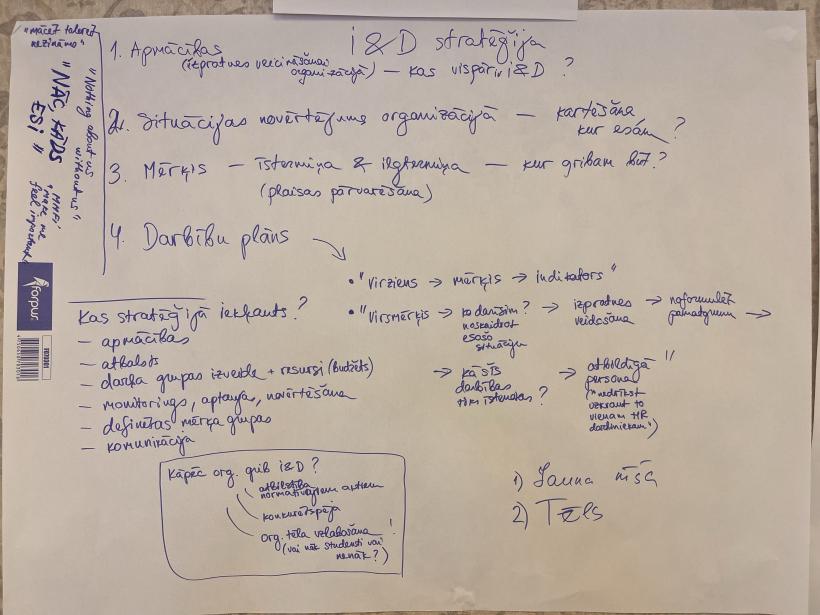 "mācēt tolerēt nezināmo"
"NĀC, KĀDS ESI"
"Nothing about us without us"
"MMFI" make me feel important
forpus
I&D stratēģija
1. Apmācības
(izpratnes veicināšanai organizācijā) — kas vispār ir i&D ?
2. Situācijas novērtējums organizācijā — kartēšana
kur esam ?
3. Mērķis — īstermiņa & ilgtermiņa — kur gribam būt?
(plaisas pārvarēšana)
4. Darbību plāns
• "virziens → mērķis → indikators"
• "Virsmērķis → ko darīsim? → izpratnes → noformulēt →
noskaidrot veidošana pamatojumu
esošo
situāciju
→ kā šīs → atbildīgā "
darbības persona
tiks īstenotas ? ("nedrīkst
uzkraut to
vienam HR
darbiniekam")
Kas stratēģijā iekļauts ?
— apmācības
— atbalsts
— darba grupas izveide + resursi (Budžets)
— monitorings, aptauja, novērtēšana
— definētas mērķa grupas
— komunikācija
Kāpēc org. grib i&D ?
atbilstība
normatīvajiem aktiem
konkurētspēja
org. tēla uzlabošana !
(vai nāk studenti vai
nenāk?)
1) Jauna
2) Tēls